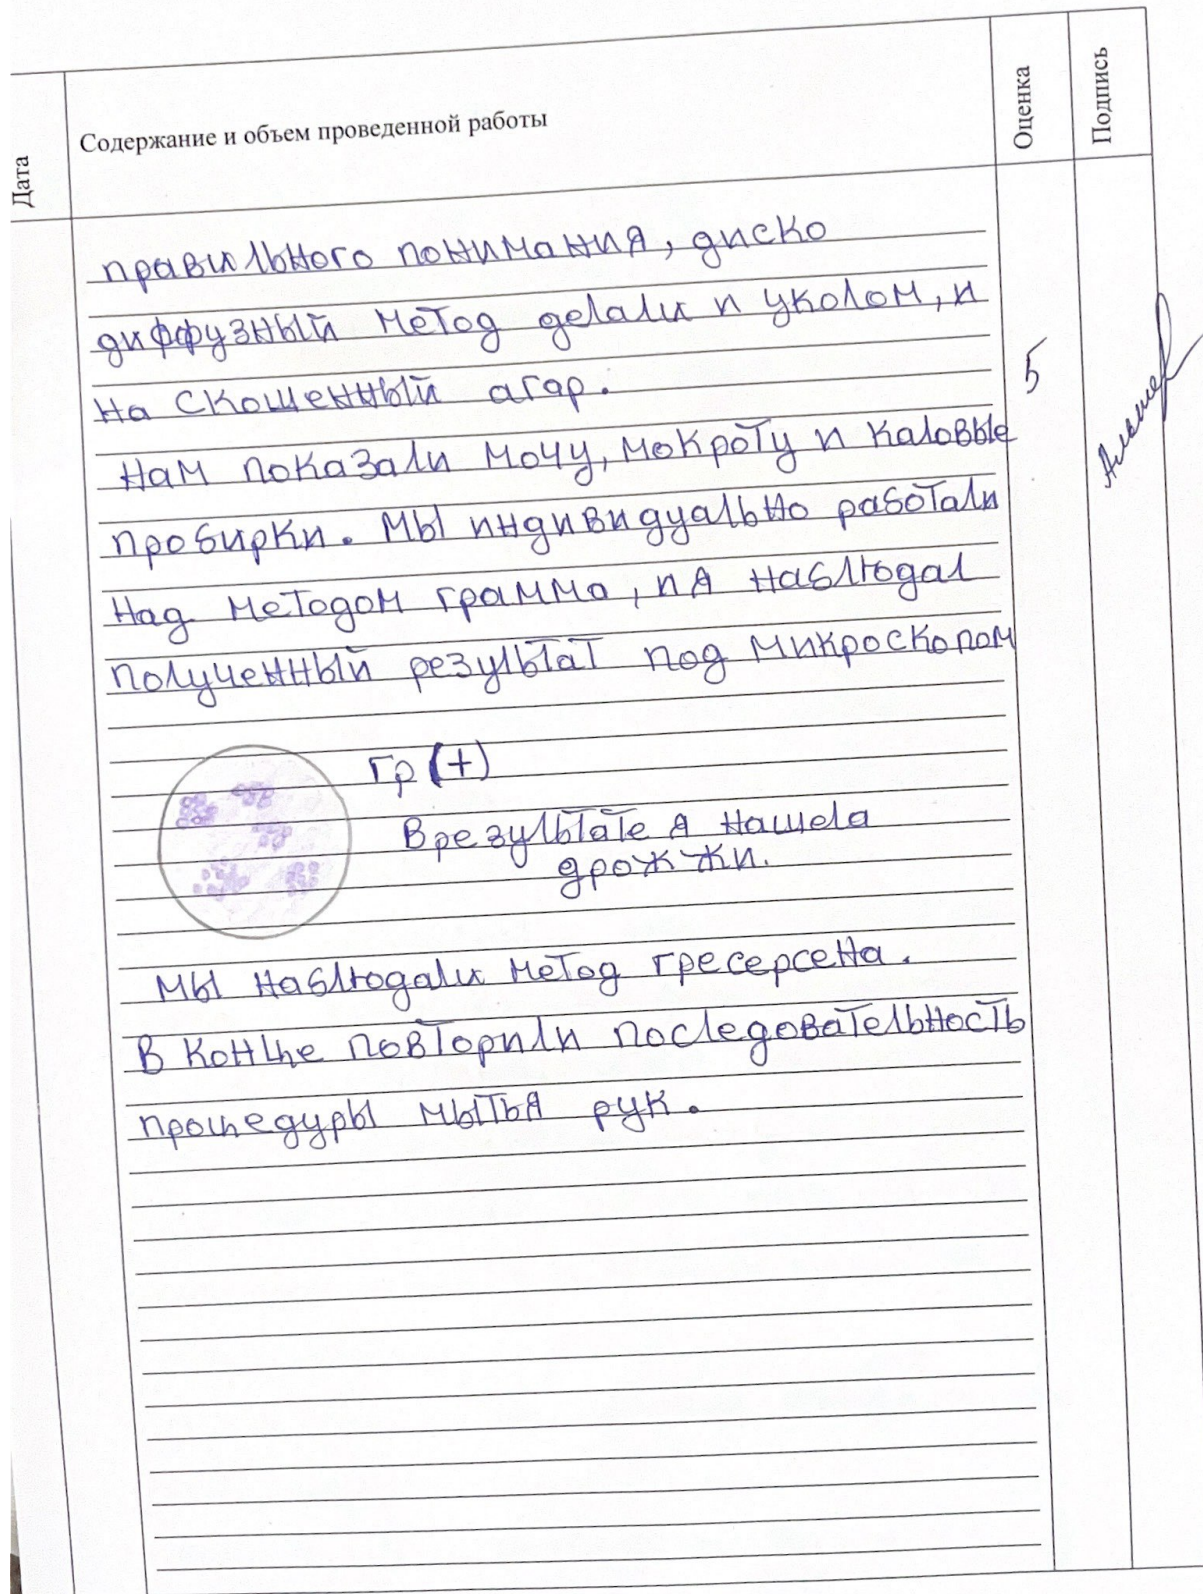 Дата
Содержание и объем проведенной работы
Оценка
Подпись
правильного понимания, диско
диффузный метод делали и уколом, и
на скошенный агар.
5
Нам показали мочу, мокроту и каловые
пробирки. Мы индивидуально работали
над методом грамма, и я наблюдал
полученный результат под микроскопом
Гр (+)
В результате я нашела
дрожжи.
Мы наблюдали метод гресерсена.
В конце повторили последовательность
процедуры мытья рук.